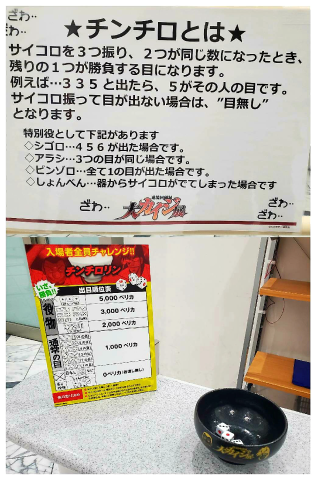 ざわ‥
ざわ‥
★チンチロとは★
サイコロを３つ振り、２つが同じ数になったとき、
残りの１つが勝負する目になります。
例えば…３３５と出たら、５がその人の目です。
サイコロ振って目が出ない場合は、”目無し”
となります。
特別役として下記があります
◇シゴロ…４５６が出た場合です。
◇アラシ…3つの目が同じ場合です。
◇ピンゾロ…全て1の目が出た場合です。
◇しょんべん…器からサイコロがでてしまった場合です
ざわ‥
大カイジ展
ざわ‥
ざわ‥
入場者全員チャレンジ!!
チンチロリン
いざ勝負!!
出目順位表
役物
5,000ペリカ
3,000ペリカ
2,000ペリカ
通常の目
1,000ペリカ
0ペリカ